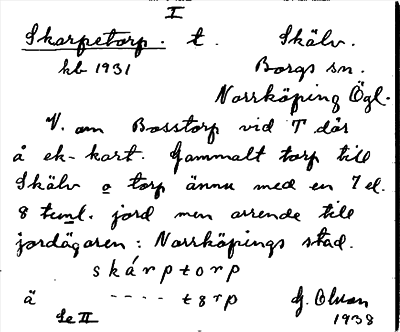 I
Skarpetorp. t. Skälv.
kb 1931 Borgs sn.
Norrköping Ögl.
V. om Bosstorp vid T där
å ek-kart. Gammalt torp till
Skälv o torp ännu med en 7 el.
8 tunl. jord men arrende till
jordägaren: Norrköpings stad.
skárptorp
ä ---- tɜrp G. Olson
Se II 1938